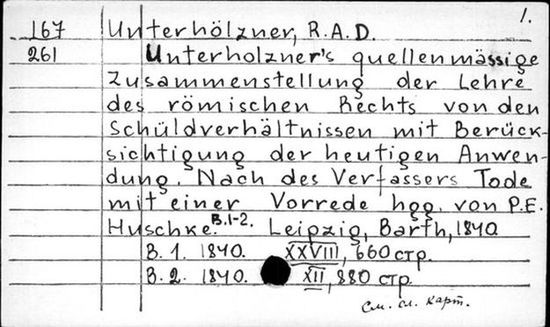 1.
167 Unterhölzner, R.A.D.
261 Unterholzner's quellenmässige
Zusammenstellung der Lehre
des römischen Rechts von den
Schüldverhältnissen mit Berück-
sichtigung der heutigen Anwen-
dung. Nach des Verfassers Tode
mit einer Vorrede hgg. von P.E.
Huschke. B.1-2. Leipzig, Barth, 1840.
B. 1. 1840. XXVIII, 660 стр.
B. 2. 1840. XII, 880 стр.
См. сл. карт.